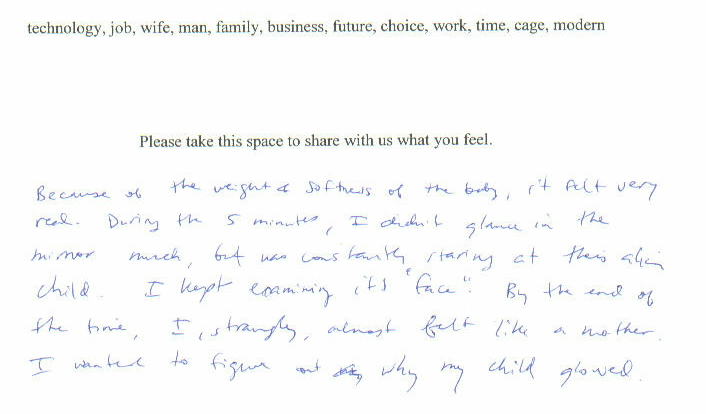 technology, job, wife, man, family, business, future, choice, work, time, cage, modern
Please take this space to share with us what you feel.
Because of the weight & softness of the body, it felt very
real. During the 5 minutes, I didn't glance in the
mirror much, but was constantly staring at this alien
child. I kept examining its "face". By the end of
the time, I, strangly, almost felt like a mother.
I wanted to figure out why my child glowed.